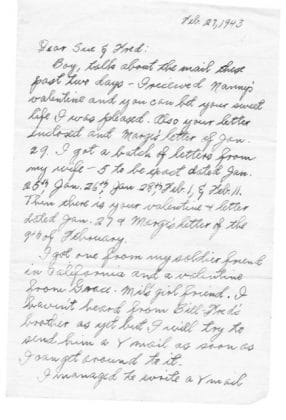 Feb. 27, 1943
Dear Sue & Fred:
Boy, talks about the mail these
past two days - I received Nanny's
valentine and you can bet your sweet
life I was pleased. Also your letter
inclosed aunt Marge's letter of Jan.
29. I got a batch of letters from
my wife - 5 to be exact dated Jan.
25th, Jan. 26th, Jan 28th, Feb. 1, & Feb. 11.
Then there is your valentine & letter
dated Jan. 27 & Marge's letter of the
9th of February.
I got one from my soldier friend
in California and a valentine
from Grace - girl friend. I
haven't heard from Bill Fred's
brother as yet but I will try to
send him a V mail as soon as
I can get around to it.
I managed to write a V mail